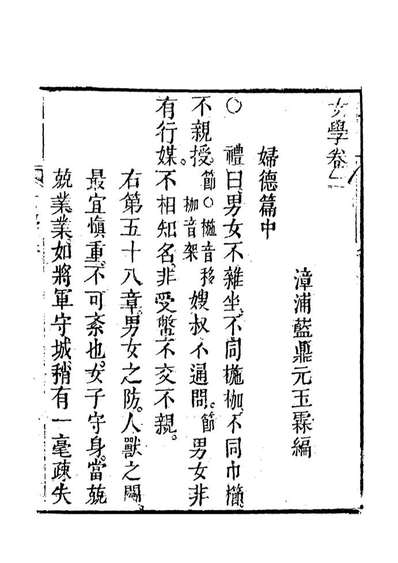 女學卷
漳浦藍鼎元玉霖編
婦德篇中
○禮曰。男女不雜坐。不同椸枷。不同巾櫛。
不親授。節○椸音移枷音架嫂叔不通問。節男女非
有行媒。不相知名。非受幣。不交不親。
右第五十八章。男女之防。人獸之關。
最宜愼重。不可紊也。女子守身。當兢
兢業業。如將軍守城。稍有一毫疎失